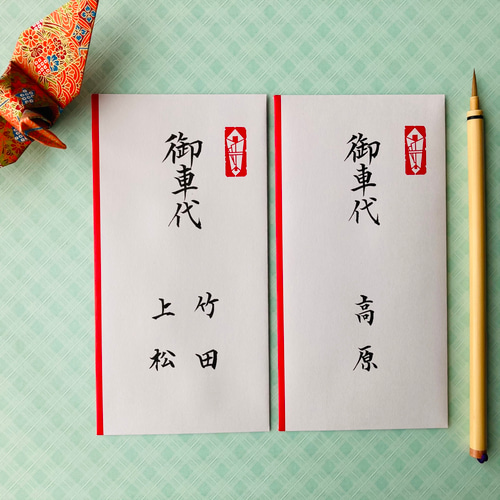 御車代
竹田
上松
御車代
高原